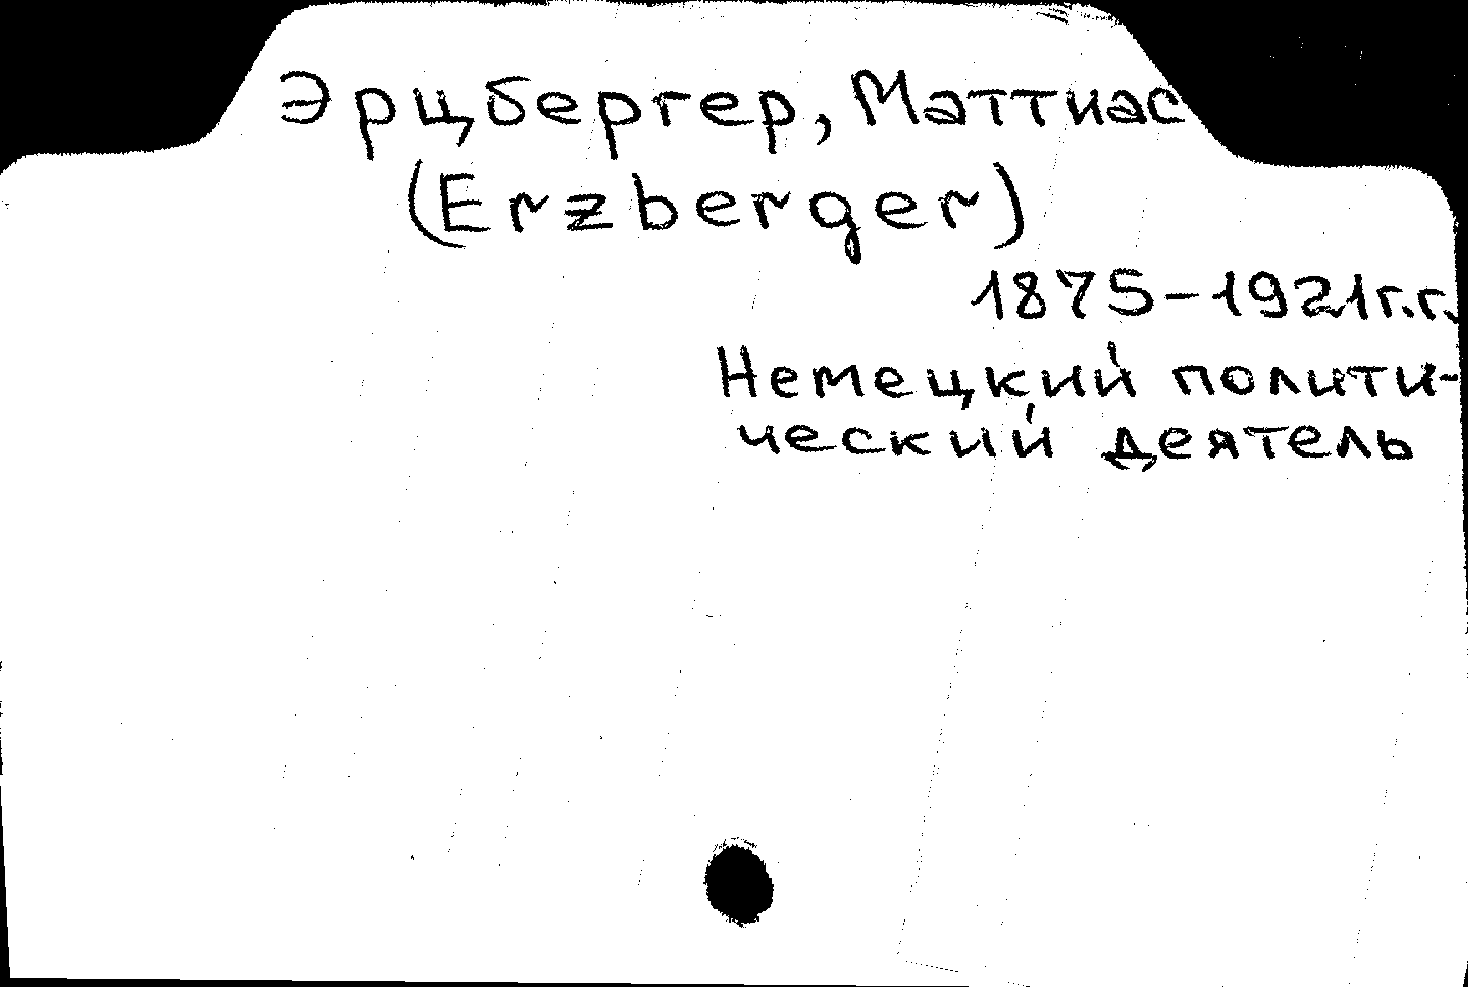 Эрцбергер, Маттиас
(Erzberger)
1875-1921г.г.
Немецкий полити-
ческий деятель